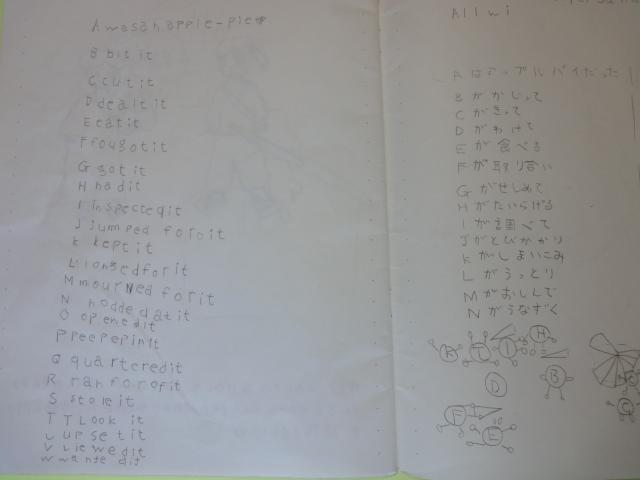 A wasanapple-pie
B bit it
C cut it
D dealt it
E eat it
F fougot it
G got it
H had it
I inspectedit
J jumped foroit
K kept it
L longedforit
M mourNed for it
N nodded at it
O openedit
P peepepinit
Q quarteredit
R ranforofit
S stole it
T T Look it
U upset it
V viewed it
W wante dit
All wi
Aはアップルパイだった
Bがかじって
Cがきって
Dがわけて
Eが食べる
Fが取り合い
Gがせしめて
Hがたいらげる
Iが調べて
Jがとびかかり
Kがしまいこみ
Lがうっとり
Mがおしんで
Nがうなずく
I
H
D
B
F
E
C